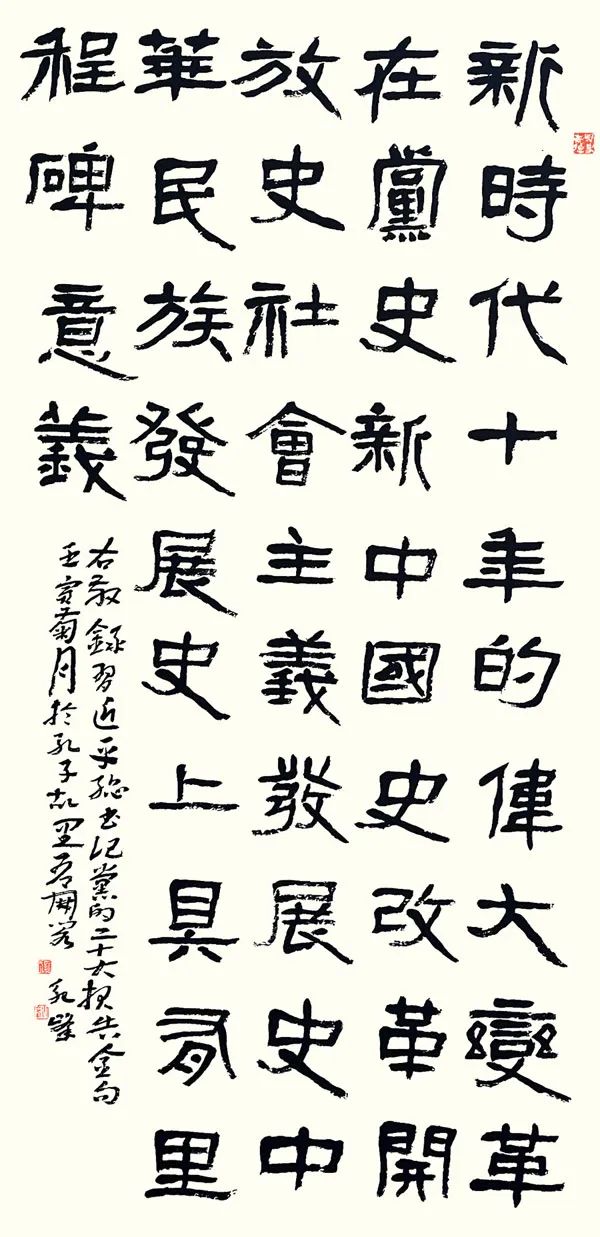 新時代十年的偉大變革
在黨史新中國史改革開
放史社會主義發展史中
華民族發展史上具有里
程碑意義
右敬錄習近平總書記黨的二十大報告金句
壬寅菊月於孔子故里
孔